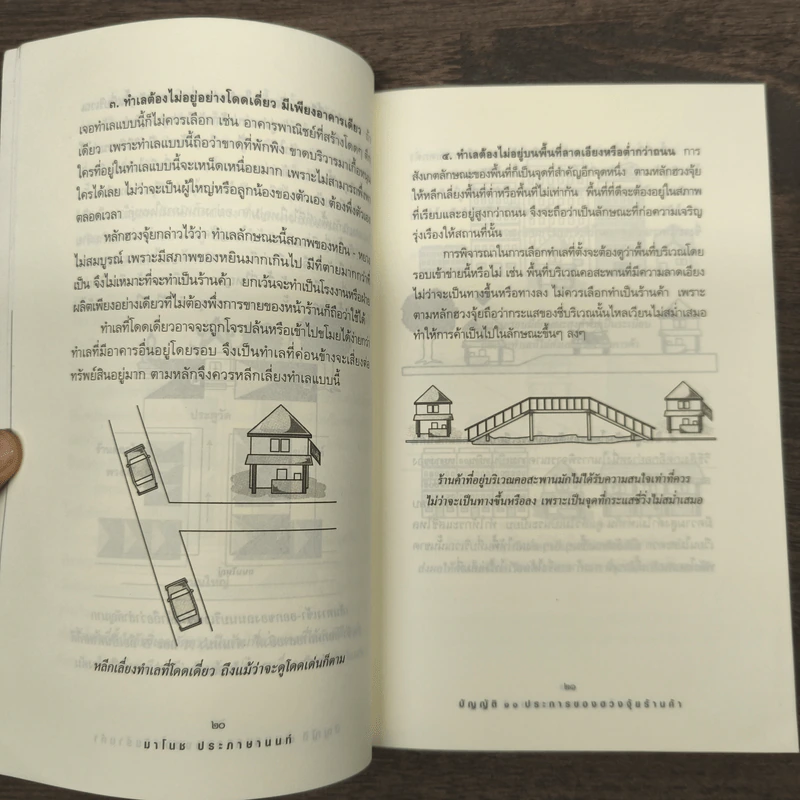 ๓. ทำเลต้องไม่อยู่อย่างโดดเดี่ยว มีเพียงอาคารเดียว
เจอทำเลแบบนี้ก็ไม่ควรเลือก เช่น อาคารพาณิชย์ที่สร้างโดดๆ
เดียว เพราะทำเลแบบนี้ถือว่าขาดที่พักพิง ขาดบริวารมาเกื้อหนุน
ใครที่อยู่ในทำเลแบบนี้จะเหน็ดเหนื่อยมาก เพราะไม่สามารถพึ่งพา
ใครได้เลย ไม่ว่าจะเป็นผู้ใหญ่หรือลูกน้องของตัวเอง ต้องพึ่งตัวเอง
ตลอดเวลา
หลักฮวงจุ้ยกล่าวไว้ว่า ทำเลลักษณะนี้สภาพของหยิน - หยาง
ไม่สมบูรณ์ เพราะมีสภาพของหยินมากเกินไป มีที่ตายมากกว่าที่
เป็น จึงไม่เหมาะที่จะทำเป็นร้านค้า ยกเว้นจะทำเป็นโรงงานหรือฝ่าย
ผลิตเพียงอย่างเดียวที่ไม่ต้องพึ่งการขายของหน้าร้านก็ถือว่าใช้ได้
ทำเลที่โดดเดี่ยวอาจจะถูกโจรปล้นหรือเข้าไปขโมยได้ง่ายกว่า
ทำเลที่มีอาคารอื่นอยู่โดยรอบ จึงเป็นทำเลที่ค่อนข้างจะเสี่ยงต่อ
ทรัพย์สินอยู่มาก ตามหลักจึงควรหลีกเลี่ยงทำเลแบบนี้
หลีกเลี่ยงทำเลที่โดดเดี่ยว ถึงแม้ว่าจะดูโดดเด่นก็ตาม
๒๐
มาโนช ประภาษานนท์
๔. ทำเลต้องไม่อยู่บนพื้นที่ลาดเอียงหรือต่ำกว่าถนน การ
สังเกตลักษณะของพื้นที่ก็เป็นจุดที่สำคัญอีกจุดหนึ่ง ตามหลักฮวงจุ้ย
ให้หลีกเลี่ยงพื้นที่ต่ำหรือพื้นที่ไม่เท่ากัน พื้นที่ที่ดีจะต้องอยู่ในสภาพ
ที่เรียบและอยู่สูงกว่าถนน จึงจะถือว่าเป็นลักษณะที่ก่อความเจริญ
รุ่งเรืองให้สถานที่นั้น
การพิจารณาในการเลือกทำเลที่ตั้งจะต้องดูว่าพื้นที่บริเวณโดย
รอบเข้าข่ายนี้หรือไม่ เช่น พื้นที่บริเวณคอสะพานที่มีความลาดเอียง
ไม่ว่าจะเป็นทางขึ้นหรือทางลง ไม่ควรเลือกทำเป็นร้านค้า เพราะ
ตามหลักฮวงจุ้ยถือว่ากระแสของชี่บริเวณนั้นไหลเวียนไม่สม่ำเสมอ
ทำให้การค้าเป็นไปในลักษณะขึ้นๆ ลงๆ
ร้านค้าที่อยู่บริเวณคอสะพานมักไม่ได้รับความสนใจเท่าที่ควร
ไม่ว่าจะเป็นทางขึ้นหรือลง เพราะเป็นจุดที่กระแสชี่วิ่งไม่สม่ำเสมอ
๒๑
บัญญัติ ๑๐ ประการของฮวงจุ้ยร้านค้า